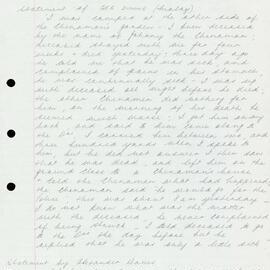 Statement of
I was camped at the other side of
the Chinaman's garden. I knew deceased
by the name of Johnny the Chinaman.
deceased stayed with me for four
weeks - died yesterday; three days ago
he told me that he was sick and
complained of pains in his stomach
he was continually sick - I was
with deceased all night before he died;
the other Chinaman did nothing for
him; on the morning of his death he
seemed much worse; I got him away
and said to him come along to
the I carried him between one and
three hundred yards when I spoke to
him but he did not answer. I then saw
that he was dead. I left him on the
ground close to a Chinaman's house
I told the Chinaman what had happened
the Chinaman said he would go for the
Police - this was about 9 am yesterday -
I do not know what was the matter
with the deceased, he never complained
of being struck - I told deceased to go
to the the day before but he
replied that he was only a little sick.
Statement by Alexander